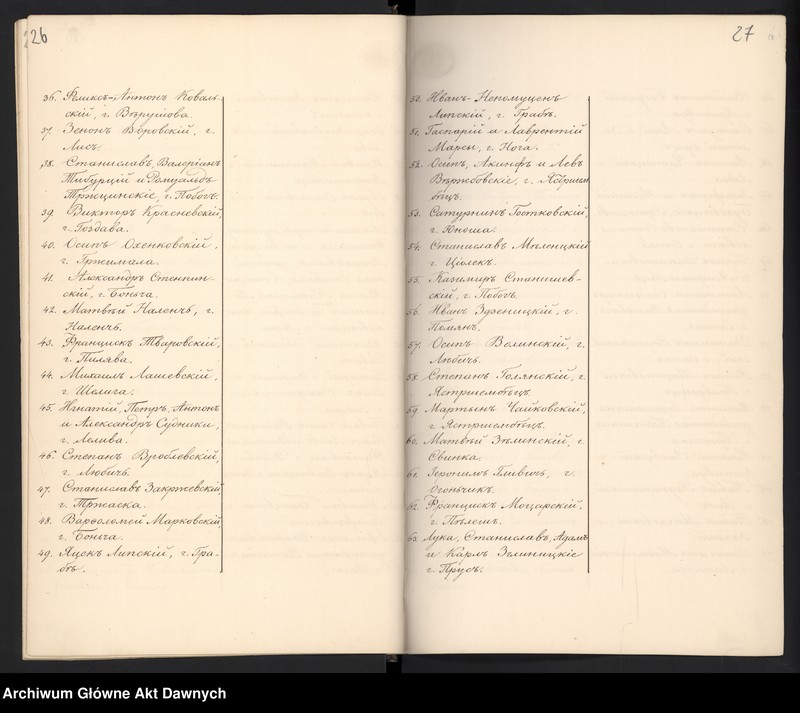 26
36. Феликсъ-Антонъ Коваль-
скій, г. Вѣрушова.
37. Зенонъ Воровскій, г.
Лисъ.
38. Станиславъ, Валеріанъ
Тибурцій и Ромуальдъ
Тржцинскіе, г. Побогъ.
39. Викторъ Красневскій,
г. Гоздава.
40. Осипъ Охенковскій,
г. Гржимала.
41. Александръ Стемпин-
скій, г. Боньча.
42. Матвѣй Налончъ, г.
Наленчъ.
43. Францискъ Тваровскій,
г. Пилява.
44. Михаилъ Лашевскій,
г. Шелига.
45. Игнатій, Петръ, Антонъ
и Александръ Судники,
г. Лелива.
46. Степанъ Вроблевскій,
г. Любичъ.
47. Станиславъ Закржевскій
г. Тржаска.
48. Варѳоломей Марковскій
г. Боньча.
49. Яцекъ Липскій, г. Гра-
бѣ.
27
50. Иванъ-Непомуценъ
Липскій, г. Грабѣ.
51. Гаспарій и Лаврентій
Марсы, г. Нога.
52. Осипъ, Акинфъ и Левъ
Вѣржбовскіе, г. Ястршем-
бѣцъ.
53. Сатурнинъ Гостковскій,
г. Юноша.
54. Станиславъ Мѣленцкій
г. Цѣолекъ.
55. Казимиръ Станишев-
скій, г. Побогъ.
56. Иванъ Здзеницкій, г.
Помянъ.
57. Осипъ Волинскій, г.
Любичъ.
58. Степанъ Голянскій, г.
Ястршембѣцъ.
59. Мартынъ Чайковскій,
г. Ястршембѣцъ.
60. Матвѣй Зѣлинскій, г.
Свинка.
61. Іеронимъ г.
Огоньчикъ.
62. Францискъ Моцарскій,
г. Пѣлешъ.
63. Лука, Станиславъ, Адамъ
и Карлъ Зѣлиницкіе
г. Прусъ.
Archiwum Główne Akt Dawnych